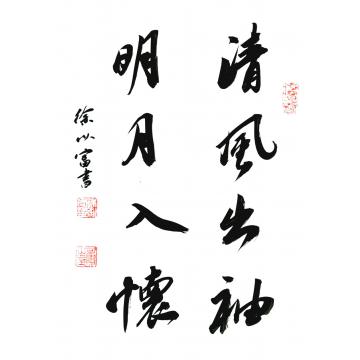 清風出袖
明月入懷
徐小富書